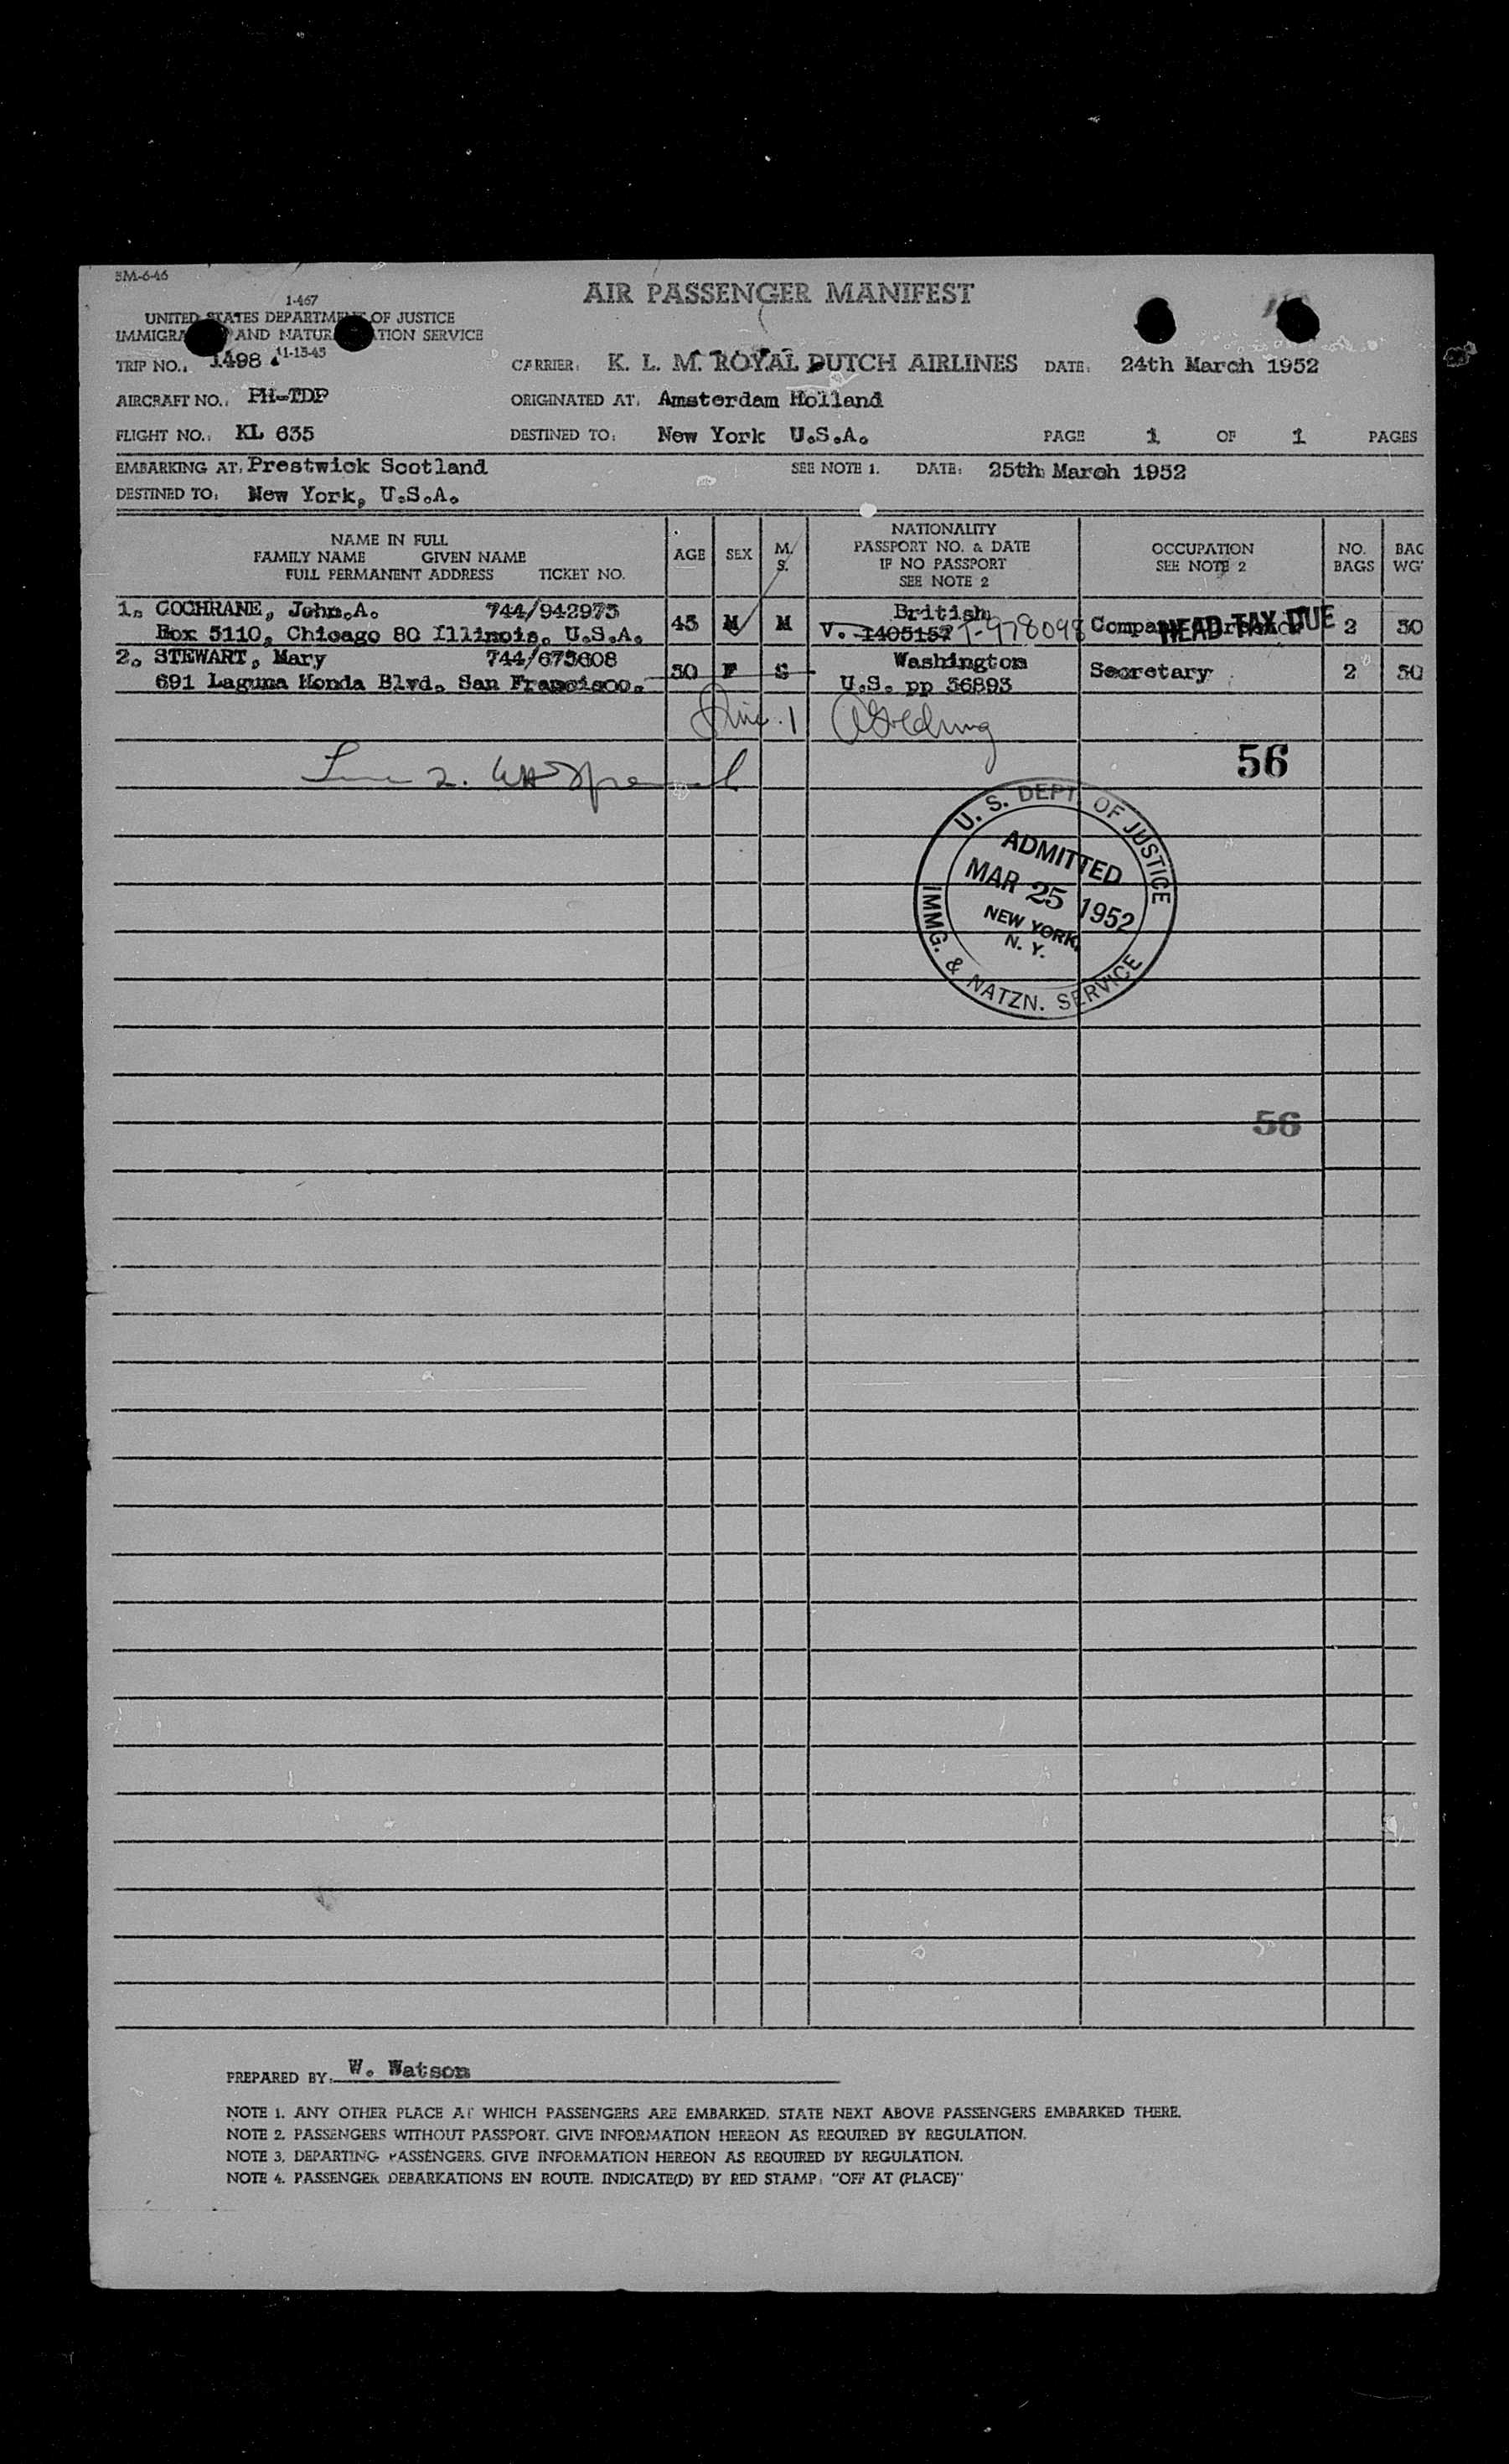 3M-6-46
AIR PASSENGER MANIFEST
1-467
UNITED STATES DEPARTMENT OF JUSTICE
IMMIGRA AND NATUR TION SERVICE
11-13-45
TRIP NO.: 1498 CARRIER: K. L. M. ROYAL DUTCH AIRLINES DATE: 24th March 1952
AIRCRAFT NO.: PH-TDP ORIGINATED AT: Amsterdam Holland
FLIGHT NO.: KL 635 DESTINED TO: New York U.S.A. PAGE 1 OF 1 PAGES
EMBARKING AT: Prestwick Scotland SEE NOTE 1. DATE: 25th March 1952
DESTINED TO: New York, U.S.A.
NAME IN FULL
FAMILY NAME GIVEN NAME
FULL PERMANENT ADDRESS TICKET NO.
AGE SEX M. S.
NATIONALITY
PASSPORT NO. & DATE
IF NO PASSPORT
SEE NOTE 2
OCCUPATION
SEE NOTE 2
NO. BAGS
BAG WG
1. COCHRANE, John.A. 744/942973 45 M M British HEAD TAX DUE 2 30
Box 5110, Chicago 80 Illinois. U.S.A. V. 1405157
2. STEWART, Mary 744/673608 30 F S Washington Secretary 2 30
691 Laguna Honda Blvd. San Francisco. U.S. pp 36893
Line 1
56
Line 2.
U. S. DEPT. OF JUSTICE
ADMITTED
MAR 25 1952
NEW YORK,
N. Y.
IMMG. & NATZN. SERVICE
56
PREPARED BY: W. Watson
NOTE 1. ANY OTHER PLACE AT WHICH PASSENGERS ARE EMBARKED, STATE NEXT ABOVE PASSENGERS EMBARKED THERE.
NOTE 2. PASSENGERS WITHOUT PASSPORT, GIVE INFORMATION HEREON AS REQUIRED BY REGULATION.
NOTE 3. DEPARTING PASSENGERS, GIVE INFORMATION HEREON AS REQUIRED BY REGULATION.
NOTE 4. PASSENGER DEBARKATIONS EN ROUTE, INDICATE(D) BY RED STAMP: "OFF AT (PLACE)"